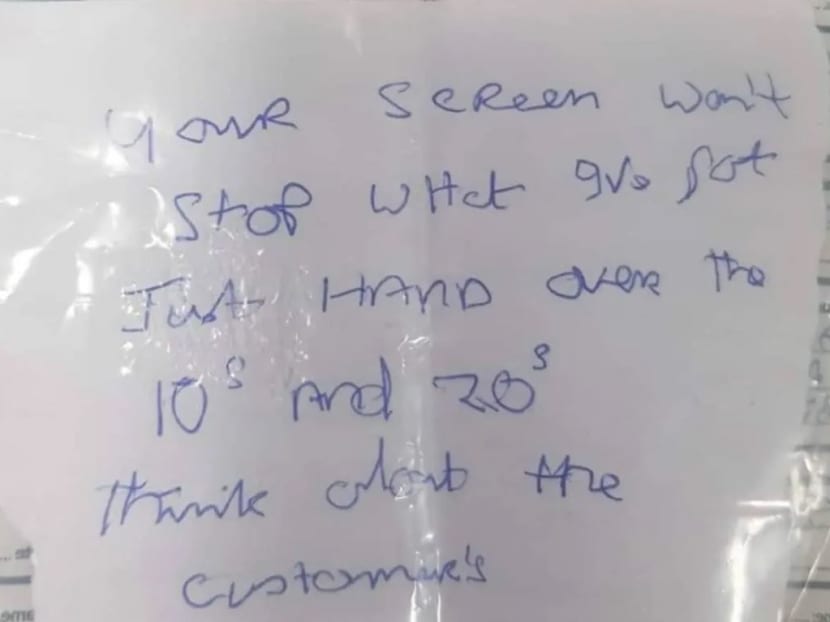 your screen won't
stop what I've got
Just HAND over the
10s And 20s
think about the
customer's